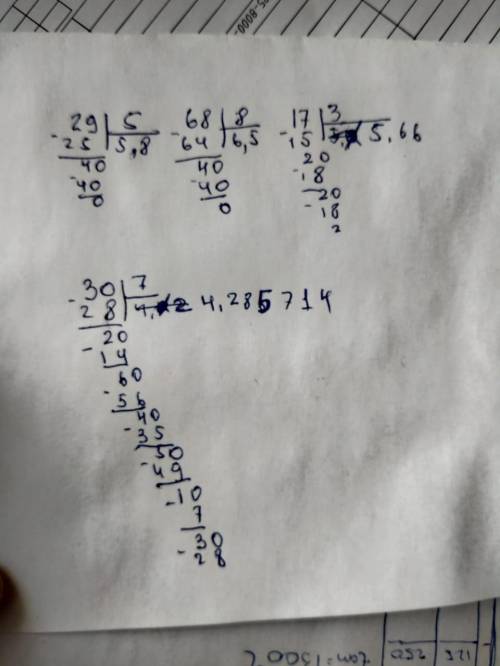 29 5
-25 5,8
40
-40
0
68 8
-64 6,5
40
-40
0
17 3
-15 5.66
20
-18
20
-18
2
30 7
-28 4,285714
20
-14
60
-56
40
-35
50
-49
-10
7
30
-28